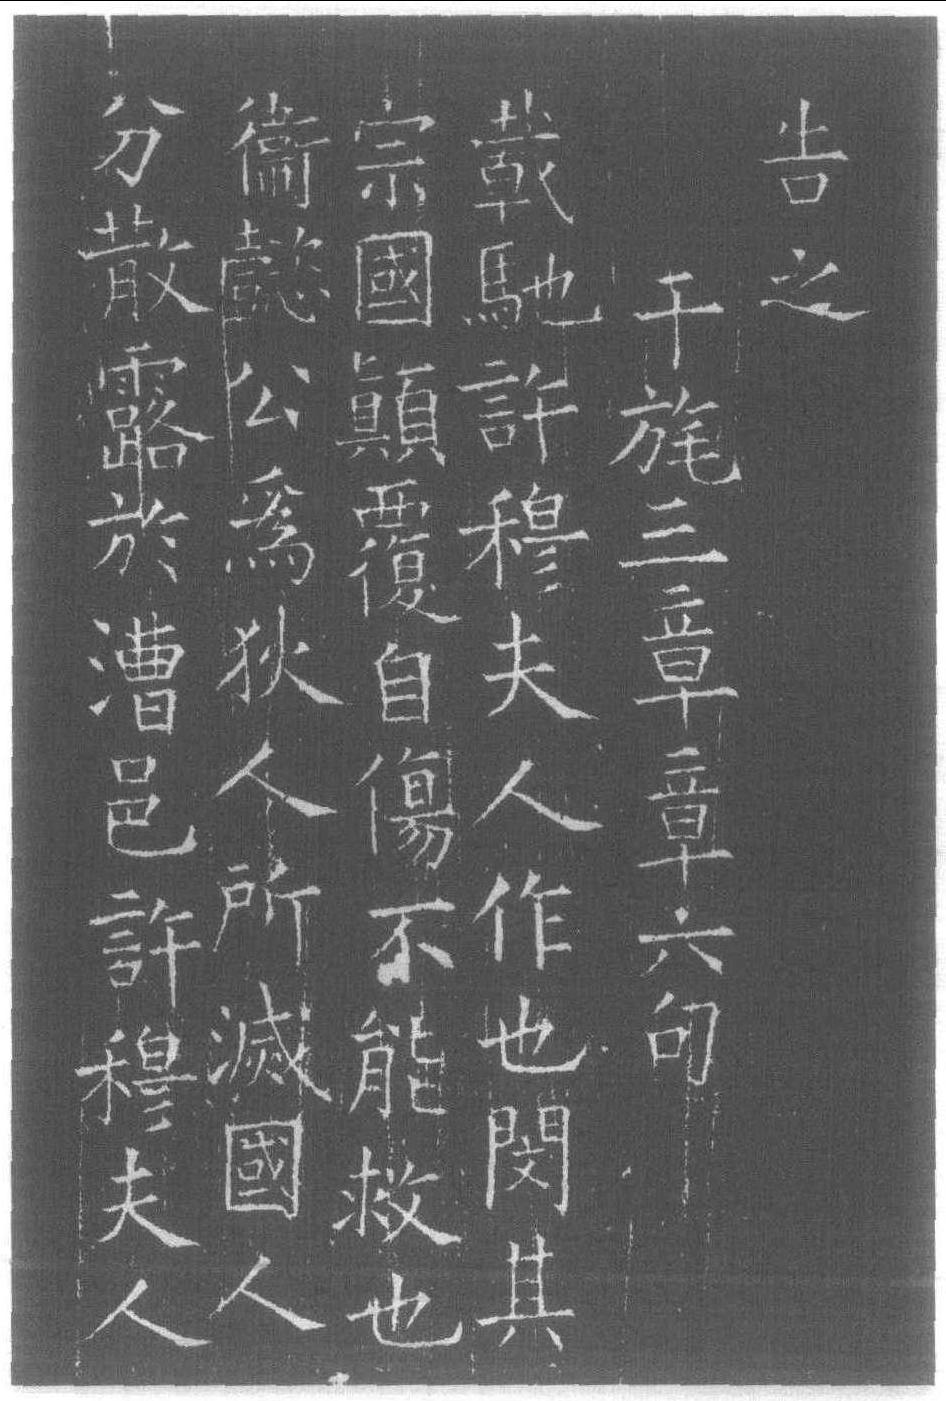 告之
干旄三章章六句
載馳許穆夫人作也閔其
宗國顚覆自傷不能救也
衞懿公爲狄人所滅國人
分散露於漕邑許穆夫人